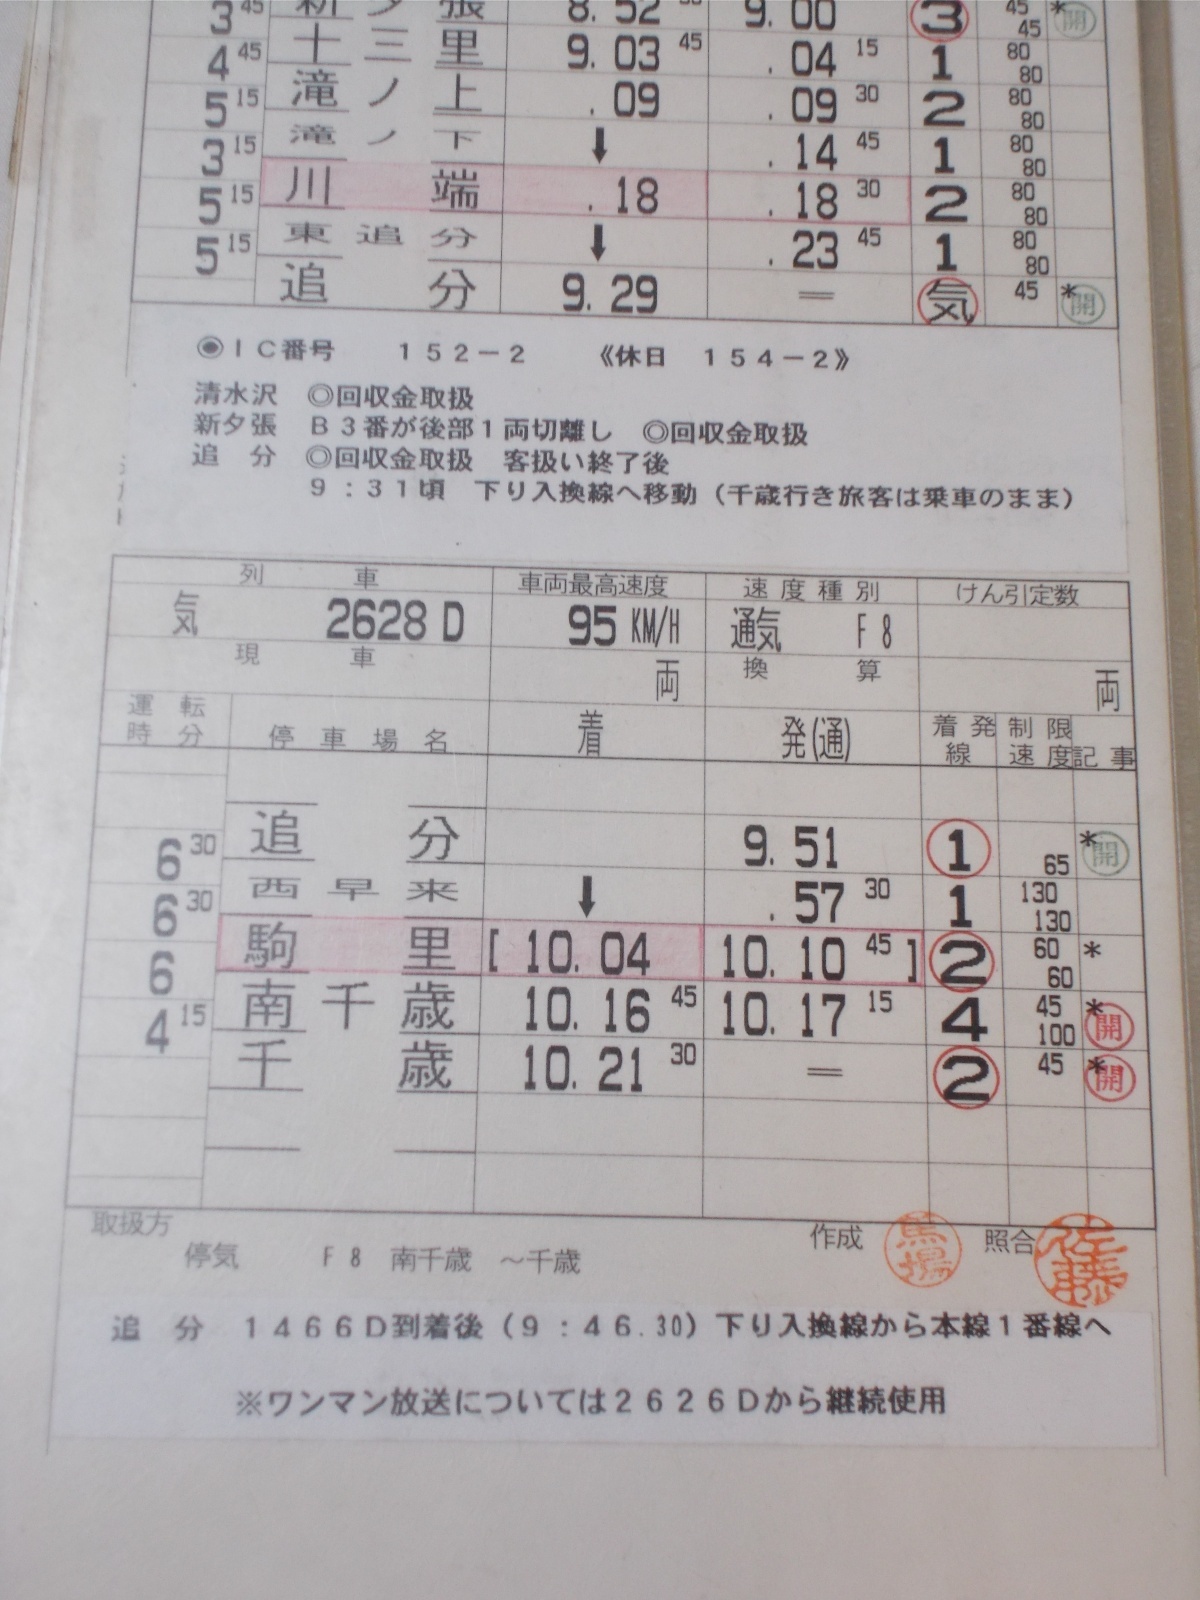 3 45 新 夕 張 8. 52 30 9. 00 3 45 45 * 開
4 45 十 三 里 9. 03 45 . 04 15 1 80 80
5 15 滝 ノ 上 . 09 . 09 30 2 80 80
3 15 滝 ノ 下 ↓ . 14 45 1 80 80
5 15 川 端 . 18 . 18 30 2 80 80
5 15 東 追 分 ↓ . 23 45 1 80 80
追 分 9. 29 = 気 45 * 開
◉IC番号 152-2 《休日 154-2》
清水沢 ◎回収金取扱
新夕張 B3番が後部1両切離し ◎回収金取扱
追 分 ◎回収金取扱 客扱い終了後
9:31頃 下り入換線へ移動(千歳行き旅客は乗車のまま)
列 車 車両最高速度 速度種別 けん引定数
気 2628D 95 KM/H 通気 F8
現 車 両 換 算 両
運転時分 停車場名 着 発(通) 着発線 制限速度 記事
6 30 追 分 9. 51 1 65 * 開
6 30 西 早 来 ↓ . 57 30 1 130 130
6 駒 里 [ 10. 04 10. 10 45 ] 2 60 60 *
4 15 南 千 歳 10. 16 45 10. 17 15 4 45 100 * 開
千 歳 10. 21 30 = 2 45 * 開
取扱方 作成 馬場 照合 佐藤
停気 F8 南千歳 ~千歳
追 分 1466D到着後(9:46.30)下り入換線から本線1番線へ
※ワンマン放送については2626Dから継続使用